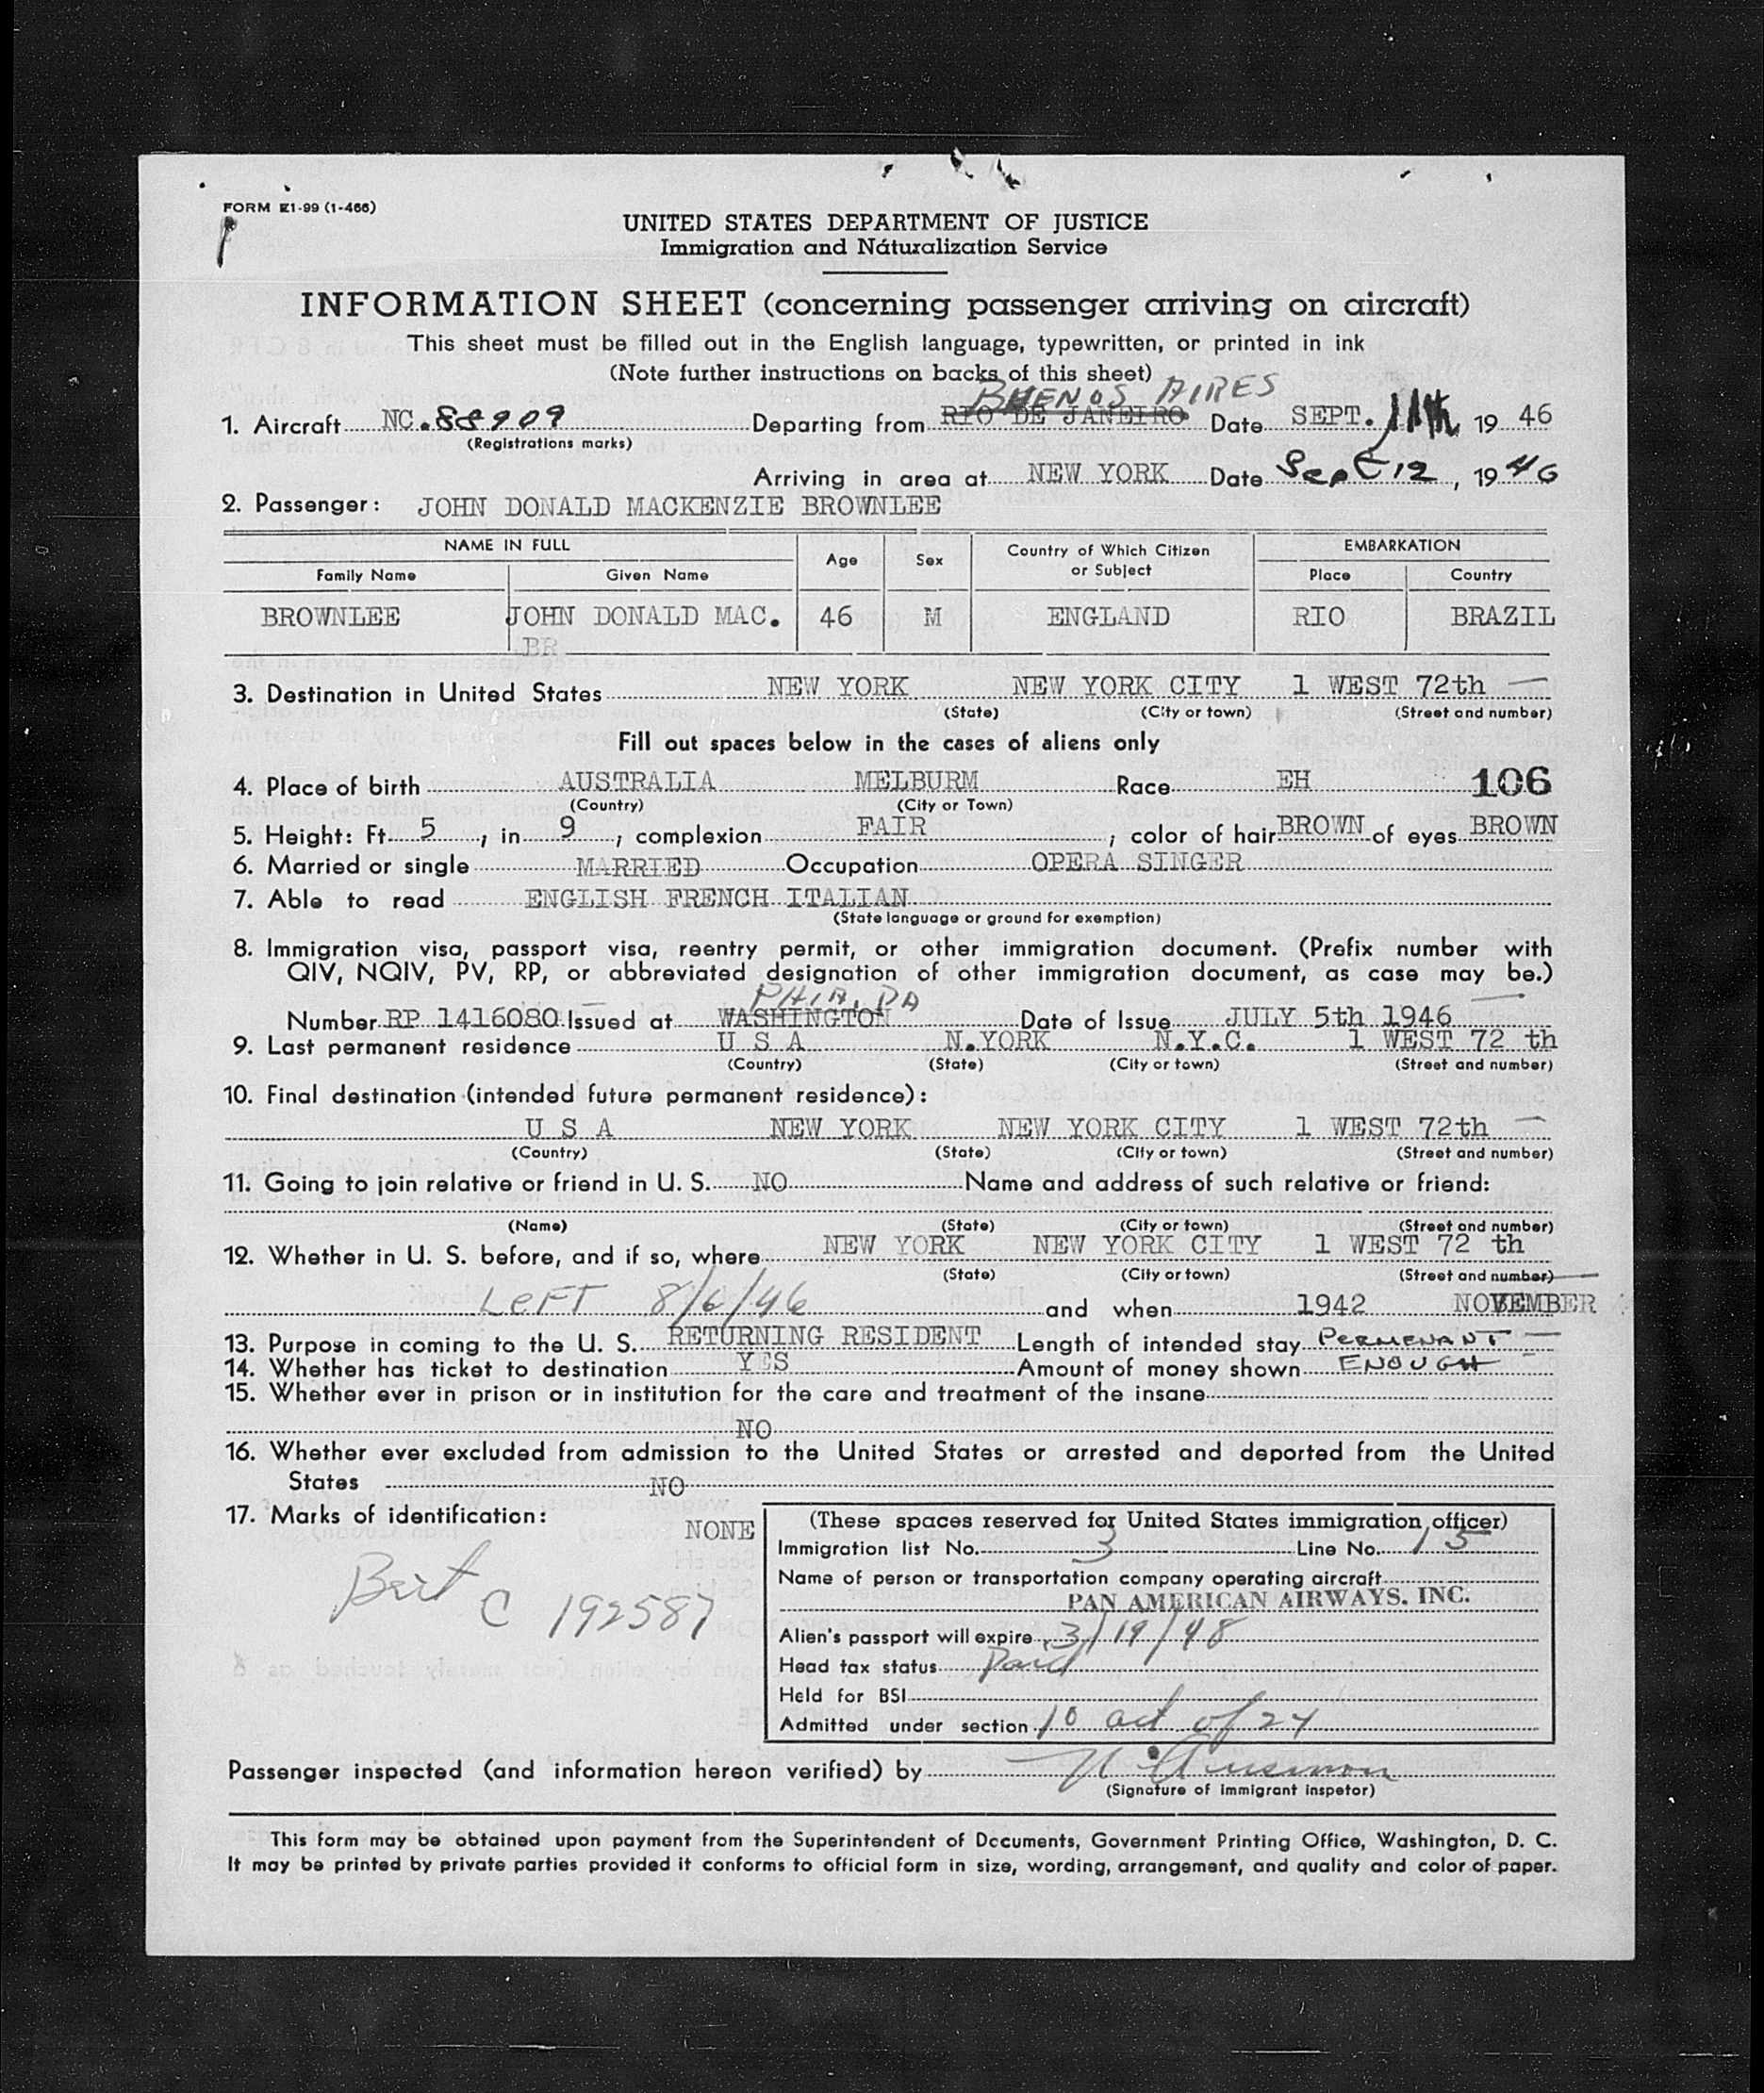 FORM I-99 (1-466)
UNITED STATES DEPARTMENT OF JUSTICE
Immigration and Naturalization Service
INFORMATION SHEET (concerning passenger arriving on aircraft)
This sheet must be filled out in the English language, typewritten, or printed in ink
(Note further instructions on backs of this sheet)
BUENOS AIRES
1. Aircraft NC.88909 Departing from RIO DE JANEIRO Date SEPT. 11th 19 46
(Registrations marks)
Arriving in area at NEW YORK Date Sept 12, 19 46
2. Passenger: JOHN DONALD MACKENZIE BROWNLEE
NAME IN FULL Age Sex Country of Which Citizen or Subject EMBARKATION
Family Name Given Name Place Country
BROWNLEE JOHN DONALD MAC. 46 M ENGLAND RIO BRAZIL
BR
3. Destination in United States NEW YORK NEW YORK CITY 1 WEST 72th
(State) (City or town) (Street and number)
Fill out spaces below in the cases of aliens only
4. Place of birth AUSTRALIA MELBURM Race EH 106
(Country) (City or Town)
5. Height: Ft. 5, in 9, complexion FAIR; color of hair BROWN of eyes BROWN
6. Married or single MARRIED Occupation OPERA SINGER
7. Able to read ENGLISH FRENCH ITALIAN
(State language or ground for exemption)
8. Immigration visa, passport visa, reentry permit, or other immigration document. (Prefix number with
QIV, NQIV, PV, RP, or abbreviated designation of other immigration document, as case may be.)
PHIA, PA
Number RP 1416080 Issued at WASHINGTON Date of Issue JULY 5th 1946
9. Last permanent residence U S A N.YORK N.Y.C. 1 WEST 72 th
(Country) (State) (City or town) (Street and number)
10. Final destination (intended future permanent residence):
U S A NEW YORK NEW YORK CITY 1 WEST 72th
(Country) (State) (City or town) (Street and number)
11. Going to join relative or friend in U. S. NO Name and address of such relative or friend:
(Name) (State) (City or town) (Street and number)
12. Whether in U. S. before, and if so, where NEW YORK NEW YORK CITY 1 WEST 72 th
(State) (City or town) (Street and number)
LEFT 8/6/46 and when 1942 NOVEMBER
13. Purpose in coming to the U. S. RETURNING RESIDENT Length of intended stay PERMENANT
14. Whether has ticket to destination YES Amount of money shown ENOUGH
15. Whether ever in prison or in institution for the care and treatment of the insane
NO
16. Whether ever excluded from admission to the United States or arrested and deported from the United
States NO
17. Marks of identification: NONE
Brit C 192587
(These spaces reserved for United States immigration officer)
Immigration list No. 3 Line No. 15
Name of person or transportation company operating aircraft
PAN AMERICAN AIRWAYS, INC.
Alien's passport will expire 3/19/48
Head tax status Paid
Held for BSI
Admitted under section 10 act of 24
Passenger inspected (and information hereon verified) by
(Signature of immigrant inspetor)
This form may be obtained upon payment from the Superintendent of Documents, Government Printing Office, Washington, D. C.
It may be printed by private parties provided it conforms to official form in size, wording, arrangement, and quality and color of paper.